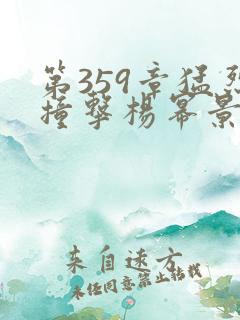 第359章猛烈
撞撃楊幂景
来自远方
未经同意禁止转载